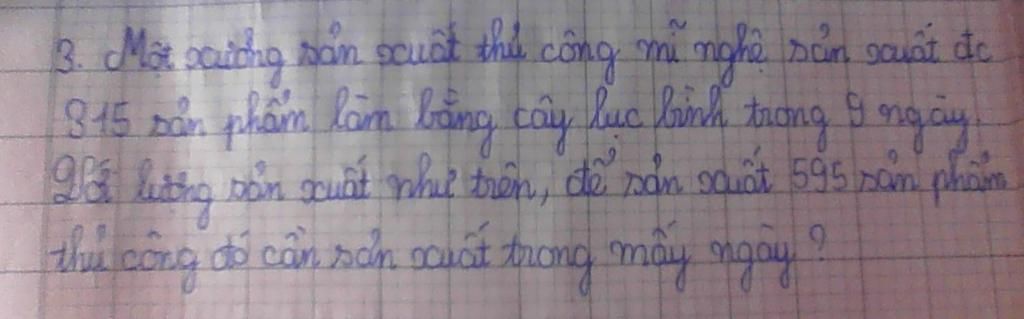 3. Một xưởng sản xuất thủ công mĩ nghệ sản xuất đc
315 sản phẩm làm bằng cây lục bình trong 9 ngày.
lượng sản xuất như trên, để sản xuất 595 sản phẩm
thủ công đó cần sản xuất trong mấy ngày?